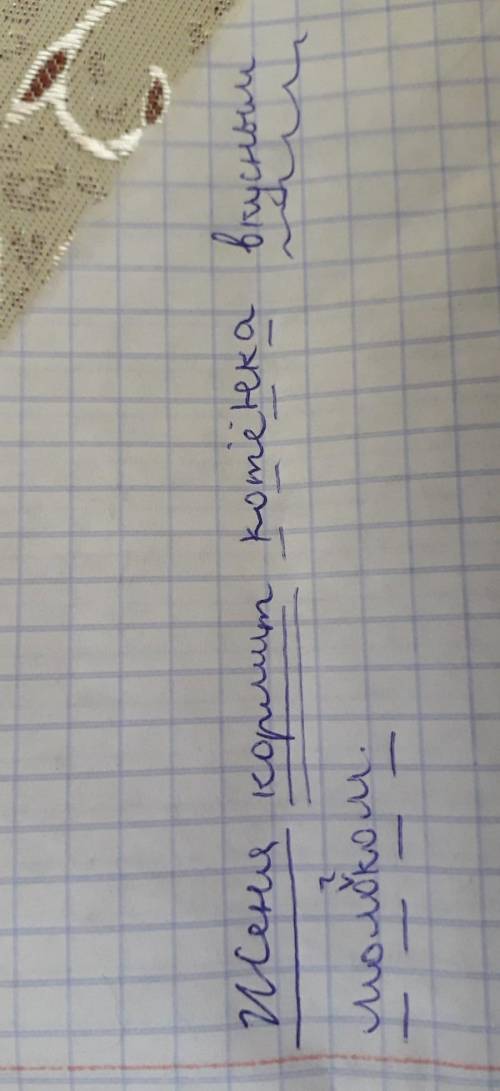 Женя кормит котёнка вкусным
молоком.